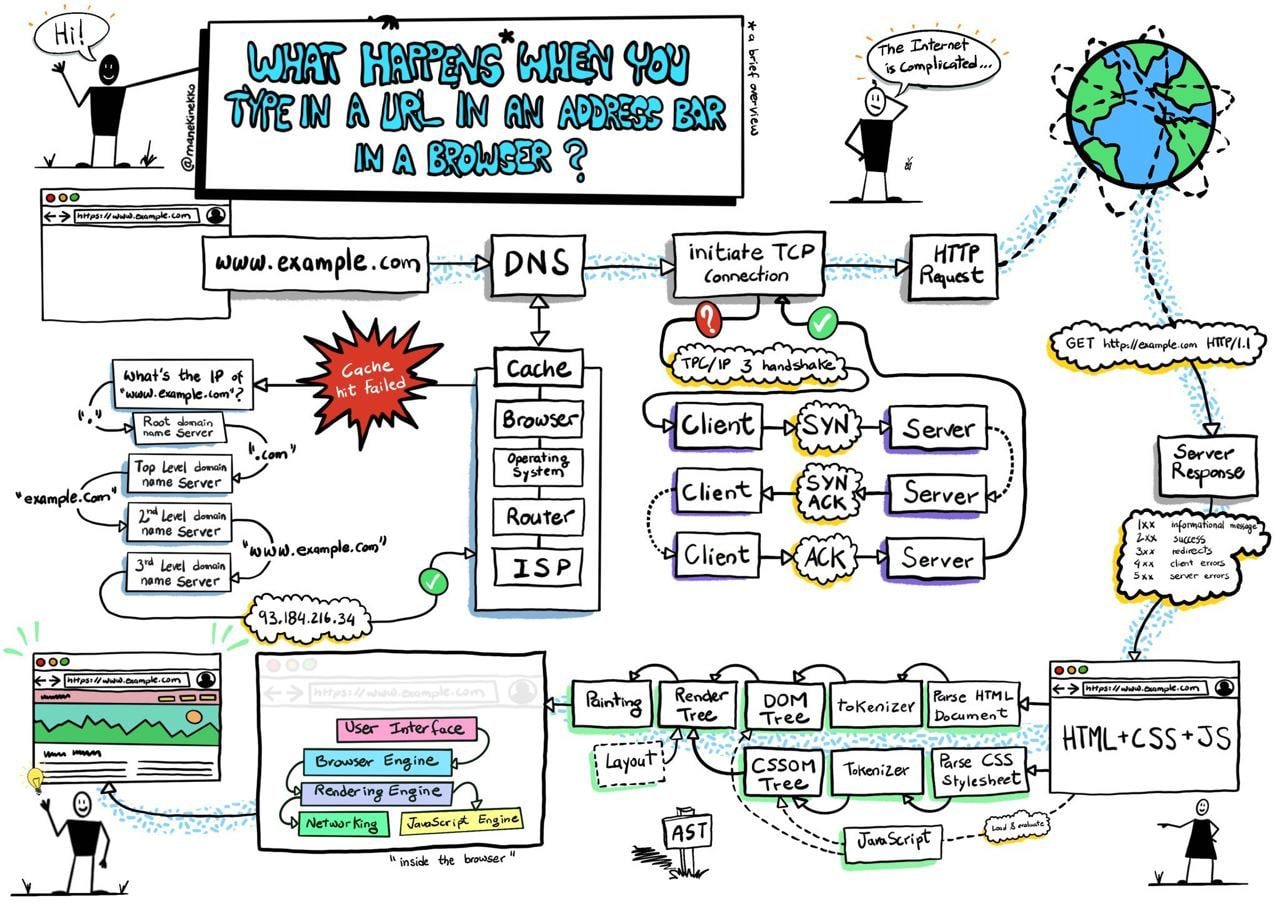 Hi!
@manekinekko
WHAT HAPPENS* WHEN YOU
TYPE IN A URL IN AN ADDRESS BAR
IN A BROWSER ?
* a brief overview
The Internet
is complicated...
https://www.example.com
www.example.com
DNS
initiate TCP
Connection
HTTP
Request
GET https://example.com HTTP/1.1
Server
Response
1xx informational message
2xx success
3xx redirects
4xx client errors
5xx server errors
Cache
Browser
Operating
System
Router
ISP
Cache
hit Failed
What's the IP of
"www.example.com"?
"."
Root domain
name Server
".com"
Top Level domain
name Server
"example.com"
2nd Level domain
name Server
"www.example.com"
3rd Level domain
name Server
93.184.216.34
?
TPC/IP 3 handshake
Client
SYN
Server
Client
SYN
ACK
Server
Client
ACK
Server
https://www.example.com
HTML+CSS+JS
Parse HTML
Document
tokenizer
DOM
Tree
Render
Tree
Painting
Layout
Parse CSS
Stylesheet
Tokenizer
CSSOM
Tree
JavaScript
Load & evaluate
AST
https://www.example.com
User Interface
Browser Engine
Rendering Engine
Networking
JavaScript Engine
"inside the browser"
https://www.example.com